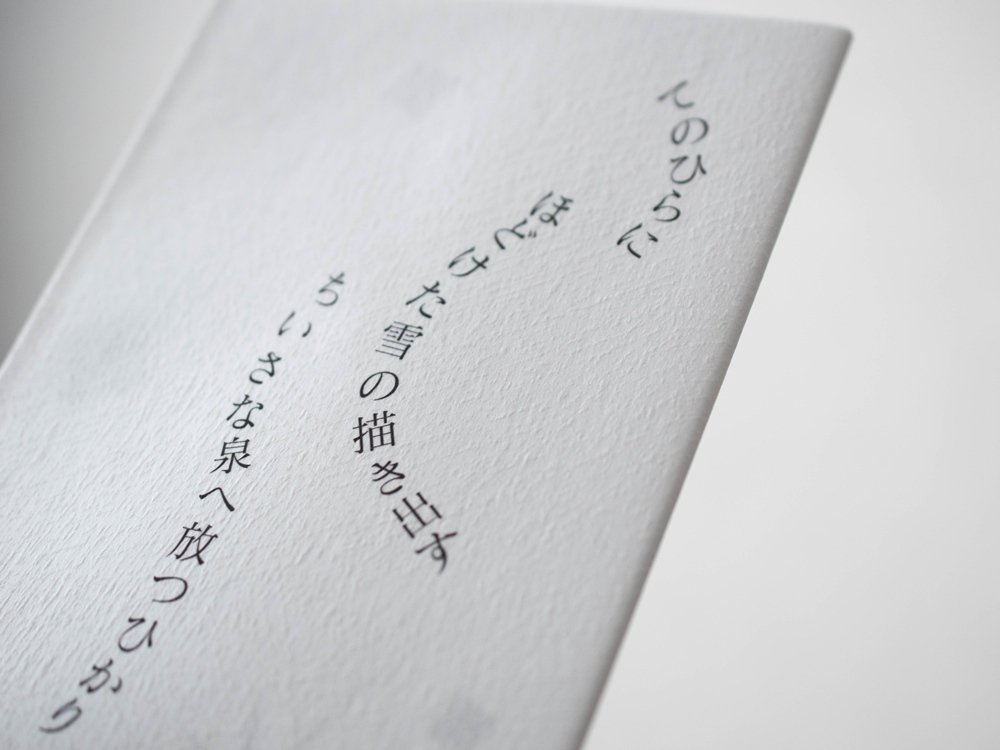 てのひらに
ほどけた雪の描き出す
ちいさな泉へ放つひかり